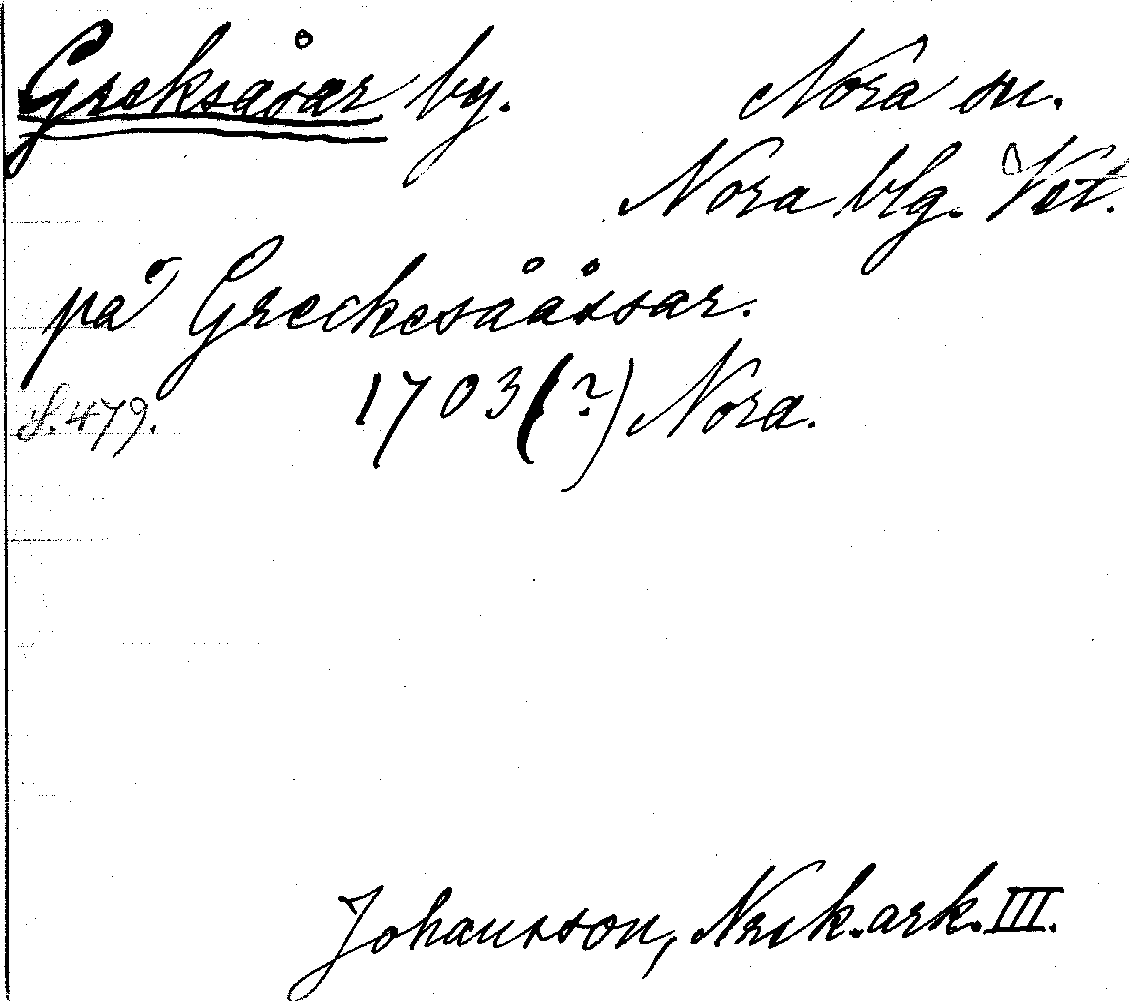 Greksåsar by. Nora sn.
Nora blg. Vst.
på Greckesååssar.
S. 479. 1703 (?) Nora.
Johansson, Nrik. ark. III.